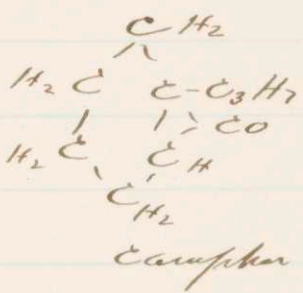 CH2
H2C C-C3H7
CO
H2C CH
CH2
Camphor